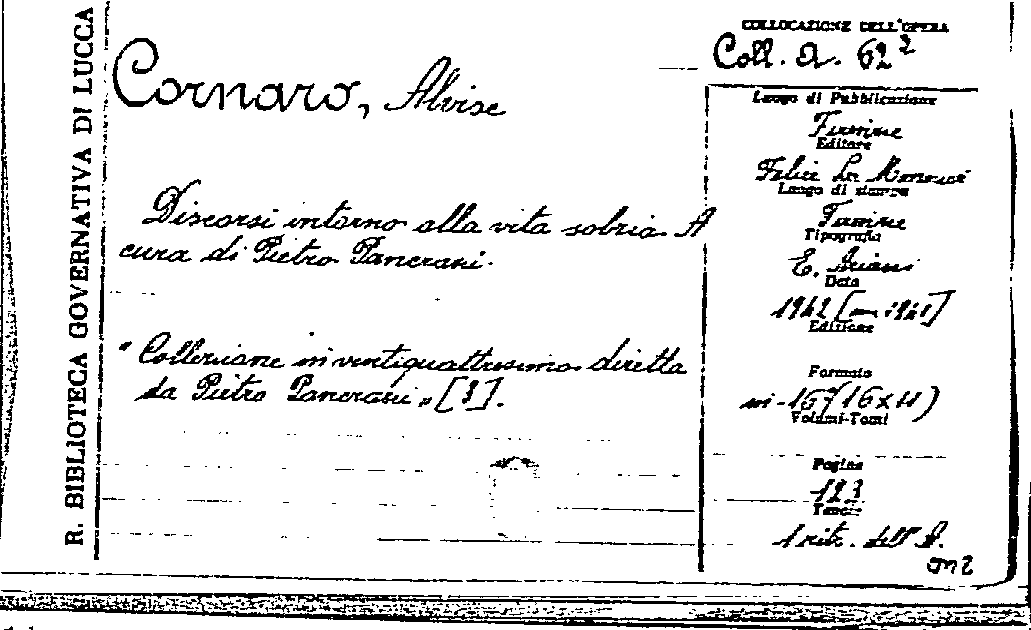 R. BIBLIOTECA GOVERNATIVA DI LUCCA
Cornaro, Alvise
Discorsi intorno alla vita sobria. A
cura di Pietro Pancrazi.
"Collezione in ventiquattresimo diretta
da Pietro Pancrazi" [ ].
COLLOCAZIONE DELL'OPERA
Coll. A. 62²
Luogo di Pubblicazione
Firenze
Editore
Felice Le Monnier
Luogo di stampa
Firenze
Tipografia
E. Ariani
Data
1942 [ 1941]
Edizione
Formato
in-16° (16x11)
Volumi-Tomi
Pagine
123
Tavole
1 ritr. dell'A.